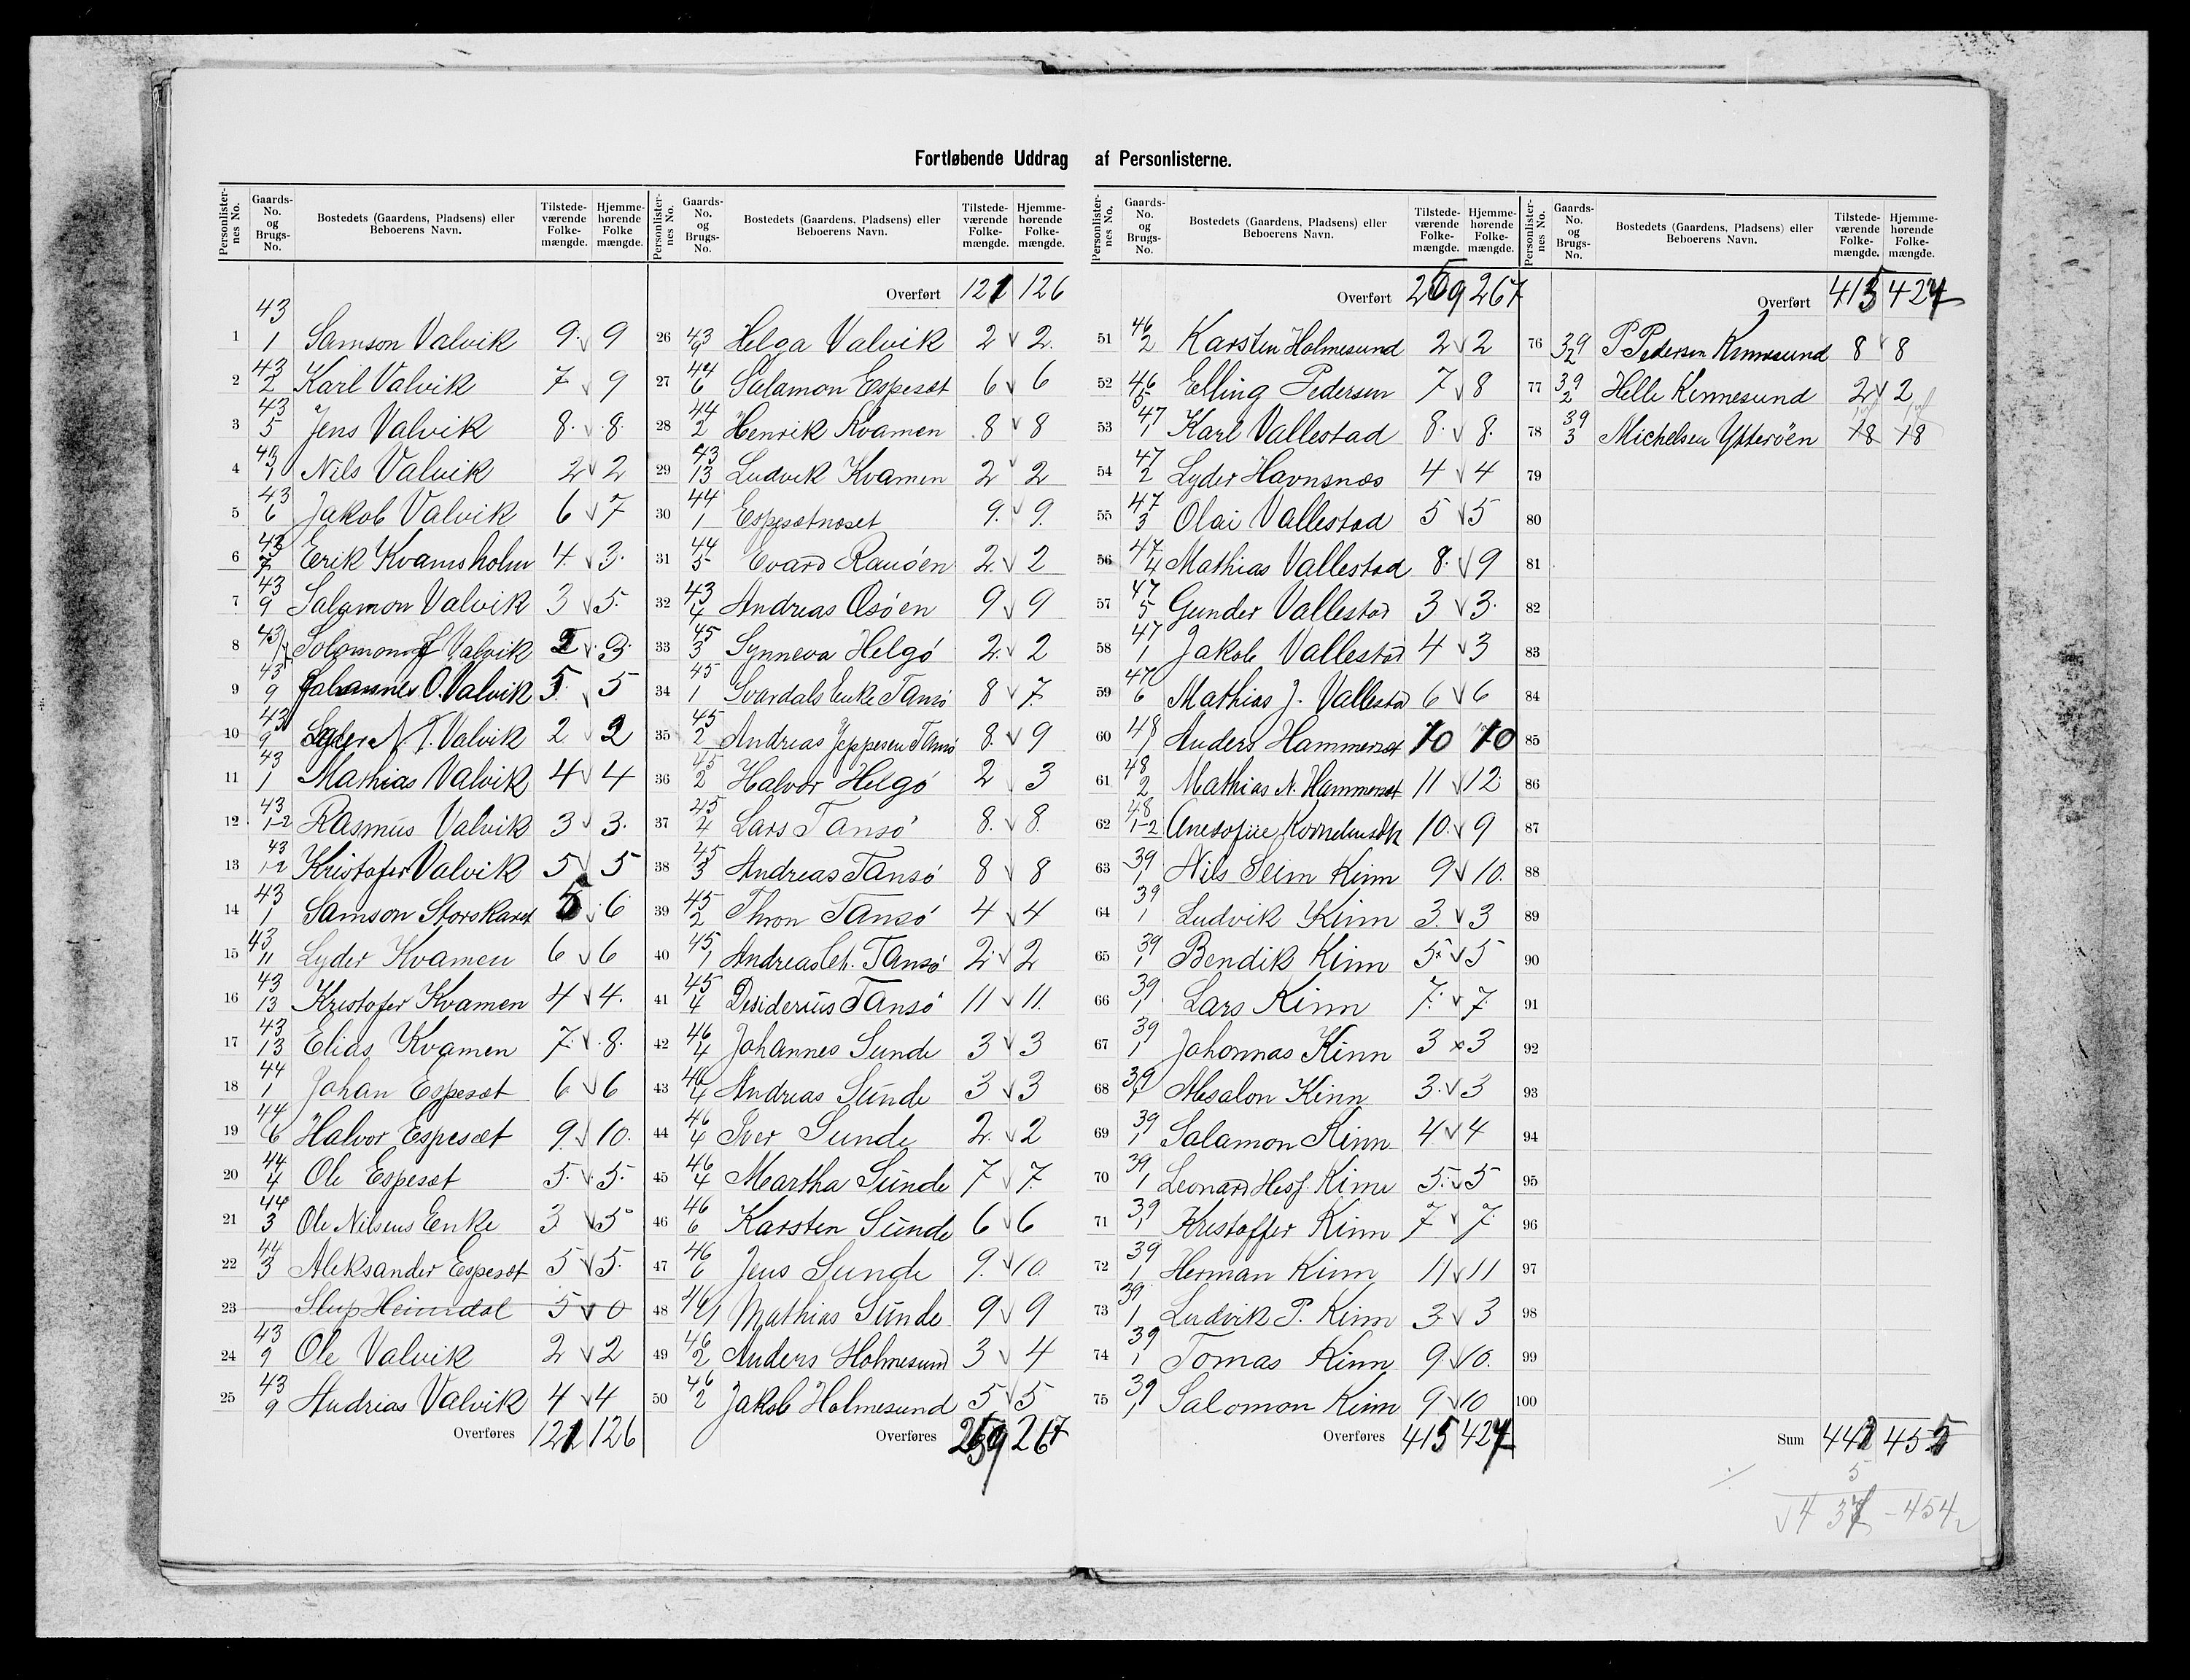 Fortløbende Uddrag af Personlisterne.
Personlister-nes No. | Gaards-No. og Brugs-No. | Bostedets (Gaardens, Pladsens) eller Beboerens Navn. | Tilstede-værende Folke-mængde. | Hjemme-hørende Folke mængde.
1 43/1 Samson Valvik 9 9
2 43/2 Karl Valvik 7 9
3 43/5 Jens Valvik 8 8
4 43/1 Nils Valvik 2 2
5 43/6 Jakob Valvik 6 7
6 43/7 Eerik Kvamsholm 4 3
7 43/9 Salamon Valvik 3 5
8 43 Solomon Valvik 3
9 43/9 Johannes O. Valvik 5 5
10 43/9 T. Valvik 2 2
11 43/1 Mathias Valvik 4 4
12 43/1-2 Rasmus Valvik 3 3
13 43/1-2 Kristofer Valvik 5 5
14 43/1 Samson Storskaret 5 6
15 43/11 Lyder Kvamen 6 6
16 43/13 Kristofer Kvamen 4 4
17 43/13 Elias Kvamen 7 8
18 44/1 Johan Espesæt 6 6
19 44/6 Halvor Espesæt 9 10
20 44/4 Ole Espesæt 5 5
21 44/3 Ole Nilsens Enke 3 5
22 44/3 Aleksander Espesæt 5 5
23 Slup Heimdal 5 0
24 43/9 Ole Valvik 2 2
25 43/9 Andrias Valvik 4 4
Overføres 121 126
Personlister-nes No. | Gaards-No. og Brugs-No. | Bostedets (Gaardens, Pladsens) eller Beboerens Navn. | Tilstede-værende Folke-mængde. | Hjemme-hørende Folke-mængde.
Overført 121 126
26 43/9 Helga Valvik 2 2
27 44/6 Salamon Espesæt 6 6
28 44/2 Henrik Kvamen 8 8
29 43/13 Ludvik Kvamen 2 2
30 44/1 Espesætnæset 9 9
31 44/5 Evard Rauøen 2 2
32 43/4 Andreas Osøen 9 9
33 45/3 Synneva Helgö 2 2
34 45/1 Svardals Enke Tansö 8 7
35 45/2 Andreas Jeppesen Tansö 8 9
36 45/2 Halvor Helgö 2 3
37 45/4 Lars Tansö 8 8
38 45/3 Andreas Tansö 8 8
39 45/2 Thron Tansö 4 4
40 45/1 Andreas Tansö 2 2
41 45/4 Desiderius Tansö 11 11
42 46/4 Johannes Sunde 3 3
43 46/4 Andreas Sunde 3 3
44 46/4 Iver Sunde 2 2
45 46/4 Martha Sunde 7 7
46 46/6 Karsten Sunde 6 6
47 46/6 Jens Sunde 9 10
48 46/1 Mathias Sunde 9 9
49 46/2 Anders Holmesund 3 4
50 46/2 Jakob Holmesund 5 5
Overføres 259 267
Personlister-nes No. | Gaards-No. og Brugs-No. | Bostedets (Gaardens, Pladsens) eller Beboerens Navn. | Tilstede-værende Folke-mængde. | Hjemme-hørende Folke-mængde.
Overført 259 267
51 46/2 Karsten Holmesund 2 2
52 46/5 Elling Pedersen 7 8
53 47/1 Karl Vallestad 8 8
54 47/2 Lyder Havnsnæs 4 4
55 47/3 Olai Vallestad 5 5
56 47/4 Mathias Vallestad 8 9
57 47/5 Gunder Vallestad 3 3
58 47/1 Jakob Vallestad 4 3
59 47/6 Mathias J. Vallestad 6 6
60 48/1 Anders Hammerset 10 10
61 48/2 Mathias N. Hammerset 11 12
62 48/1-2 Anesofiie 10 9
63 39/1 Nils Seim Kinn 9 10
64 39/1 Ludvik Kinn 3 3
65 39/1 Bendik Kinn 5 5
66 39/1 Lars Kinn 7 7
67 39/1 Johannas Kinn 3 3
68 39/1 Absalon Kinn 3 3
69 39/1 Salamon Kinn 4 4
70 39/1 Leonard Kinn 5 5
71 39/1 Kristoffer Kinn 7 7
72 39/1 Herman Kinn 11 11
73 39/1 Ludvik P. Kinn 3 3
74 39/1 Tomas Kinn 9 10
75 39/1 Salomon Kinn 9 10
Overføres 415 427
Personlister-nes No. | Gaards-No. og Brugs-No. | Bostedets (Gaardens, Pladsens) eller Beboerens Navn. | Tilstede-værende Folke-mængde. | Hjemme-hørende Folke-mængde.
Overført 415 427
76 39/2 P Pedersen Kinnesund 8 8
77 39/2 Helle Kinnesund 2 2
78 39/3 Michelsen Ytterøen 18 18
79
80
81
82
83
84
85
86
87
88
89
90
91
92
93
94
95
96
97
98
99
100
Sum 442 455
5
437 - 454